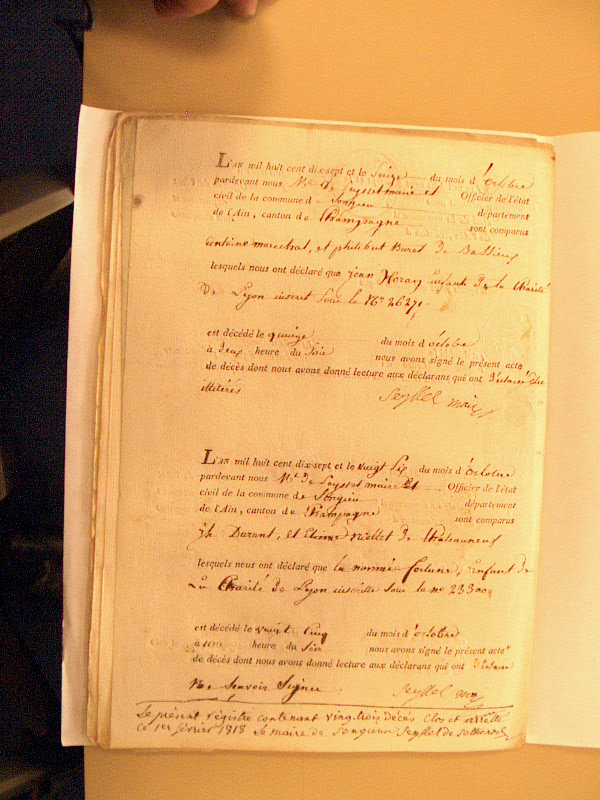 L'an mil huit cent dix-sept et le Seize du mois d'Octobre
pardevant nous Mr De Seyssel maire et Officier de l'état
civil de la commune de Songieu département
de l'Ain, canton de Champagne sont comparus
antoine marechal, et philibert Buret de
lesquels nous ont déclaré que jean enfants de la Charité
De Lyon inscrit Sous le No 2627
est décédé le quinze du mois d'octobre
à deux heure du Soir nous avons signé le présent acte
de décès dont nous avons donné lecture aux déclarans qui ont Déclaré être
illitérés Seyssel maire
L'an mil huit cent dix-sept et le vingt Six du mois d'Octobre
pardevant nous Mr De Seyssel maire Et Officier de l'état
civil de la commune de Songieu département
de l'Ain, canton de Champagne sont comparus
jh Durant, et Etienne de Chateauneuf
lesquels nous ont déclaré que la nommée fortune, Enfant de
La Charité de Lyon inscritte Sous le no 23300
est décédé le vingt Cinq du mois d'octobre
à heure du Soir nous avons signé le présent acte
de décès dont nous avons donné lecture aux déclarans qui ont Déclaré
Ne Scavoir Signer Seyssel
Le présent régistre contenant vingt trois décès Clos et arrêté
Ce 1er février 1818 le maire de Songieu Seyssel de